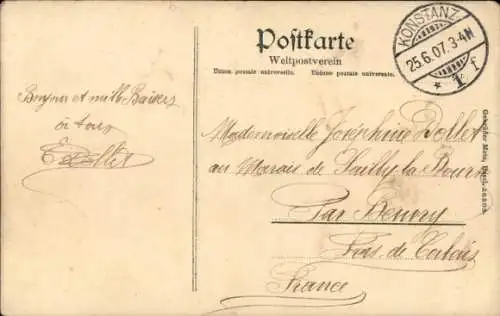 Postkarte
Weltpostverein
Union postale universelle. Unione postale universale.
KONSTANZ
25.6.07. 3-4N
* 1 f
Bonjour et mille Baisers
à tous
Mademoiselle Joséphine Dollet
au Marais de Sailly la Bourse
Par Beuvry
Pas de Calais
France
Gebrüder Metz,